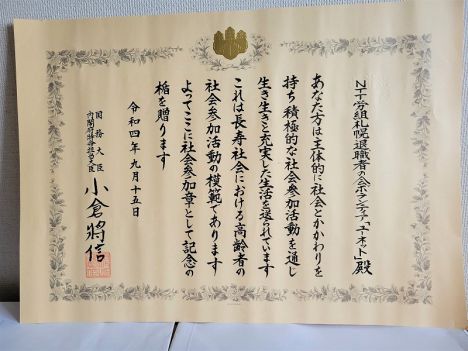 NTT労組札幌退職者の会ボランティア「ユーネット」殿
あなた方は主体的に社会とかかわりを
持ち積極的な社会参加活動を通じ
生き生きと充実した生活を送られています
これは長寿社会における高齢者の
社会参加活動の模範であります
よってここに社会参加章として記念の
楯を贈ります
令和四年九月十五日
国務大臣
内閣府特命担当大臣
小倉將信